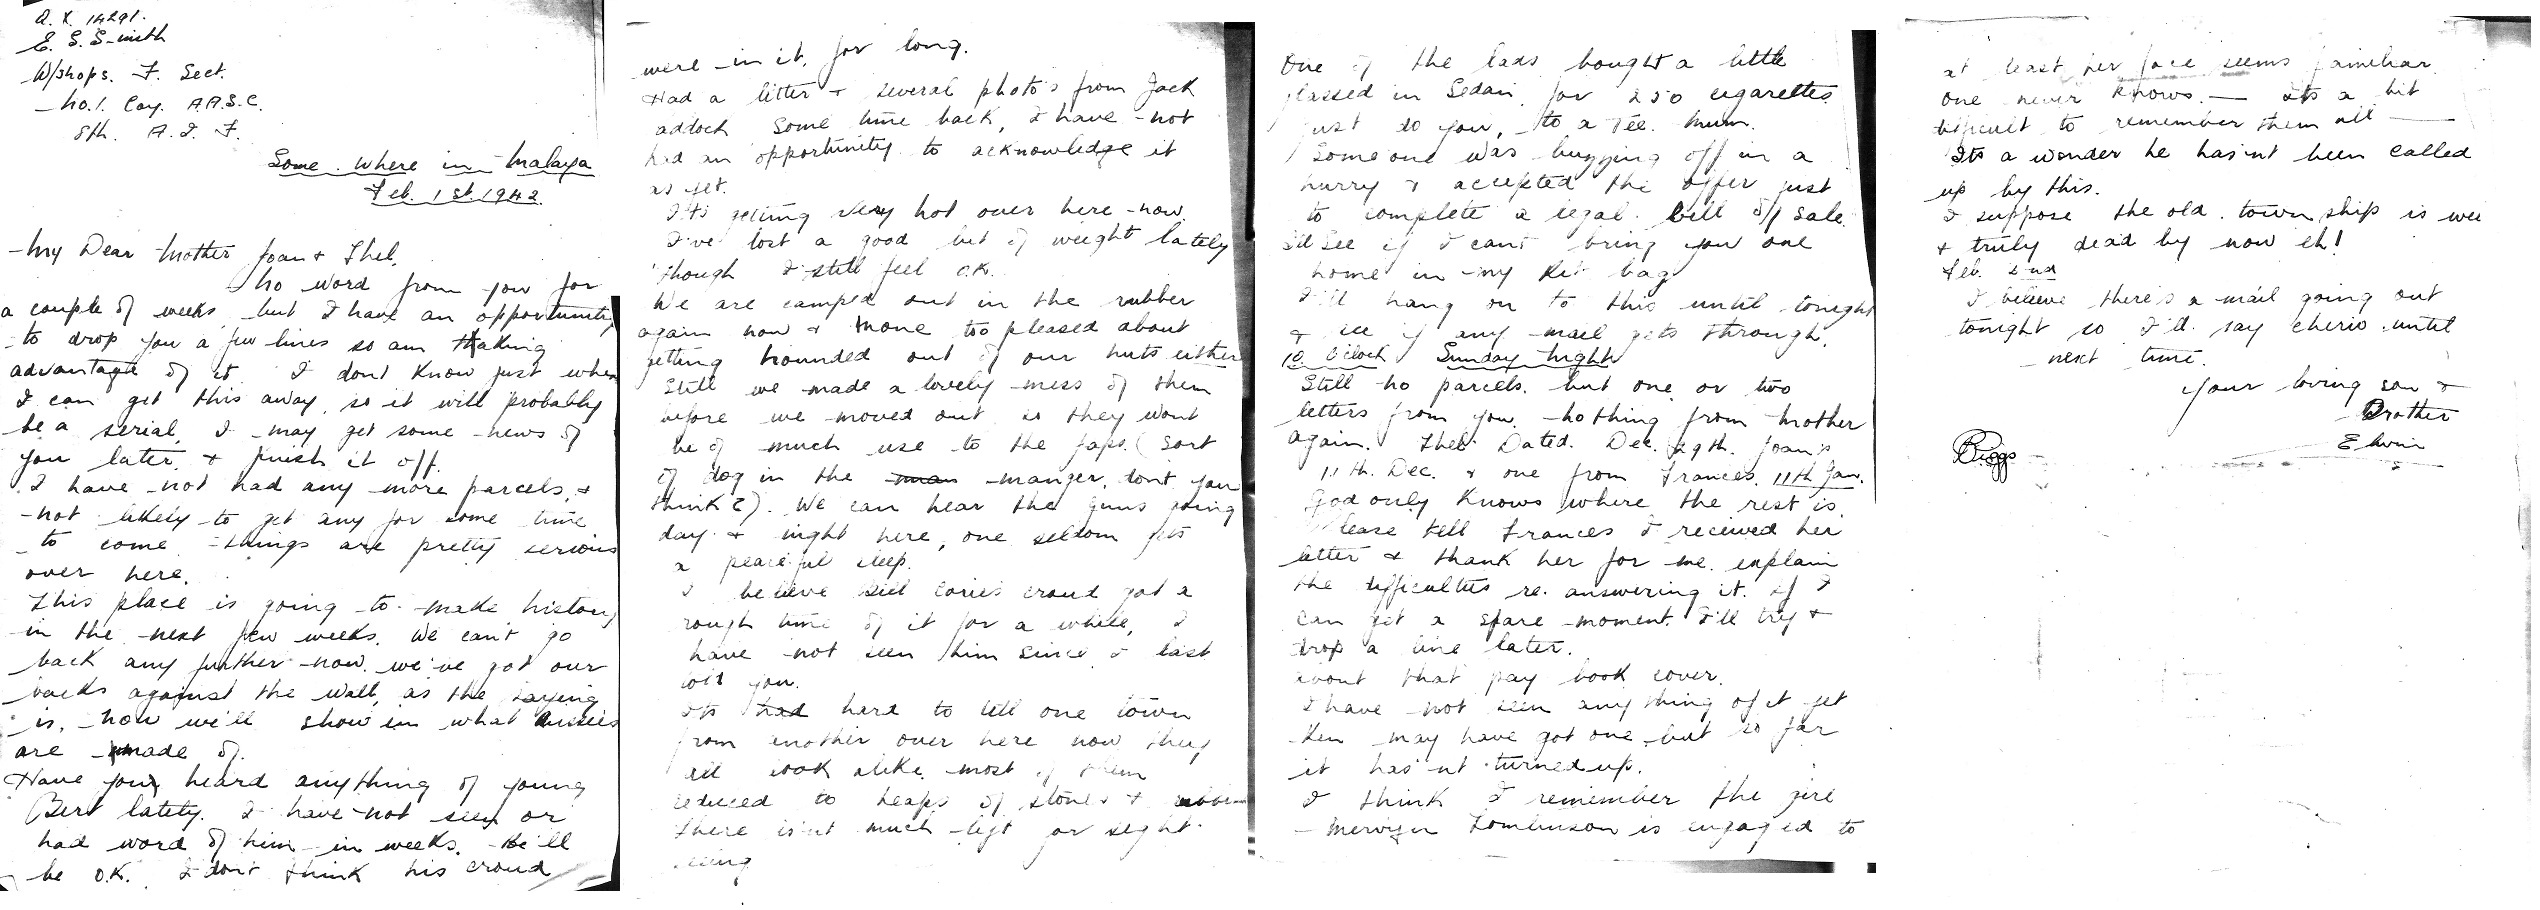 A.X. 14291.
E. S. Smith
W/shops. F. Sect.
No.1. Coy. A.A.S.C.
8th. A. I. F.
Some. where in Malaya
Feb. 1st. 1942.
My Dear Mother Joan & Thel.
No word from you for
a couple of weeks but I have an opportunity
to drop you a few lines so am taking
advantage of it. I dont know just when
I can get this away, so it will probably
be a serial, I may get some news of
you later & finish it off.
I have not had any more parcels, &
not likely to get any for some time
to come things are pretty serious
over here.
This place is going to make history
in the next few weeks. We can't go
back any further now. we've got our
backs against the wall, as the saying
is, now we'll show em what Aussies
are made of.
Have you heard anything of young
Bert lately. I have not seen or
had word of him in weeks. He'll
be O.K. I don't think his croud
were in it, for long.
Had a letter & several photo's from Jack
addock some time back, I have not
had an opportunity to acknowledge it
as yet.
It's getting very hot over here now.
I've lost a good bit of weight lately
though I still feel O.K.
We are camped out in the rubber
again now & none too pleased about
getting hounded out of our huts either
Still we made a lovely mess of them
before we moved out so they wont
be of much use to the Japs. (Sort
of dog in the manger, dont you
think?). We can hear the guns going
day & night here, one seldom gets
a peaceful sleep.
I believe croud got a
rough time of it for a while, I
have not seen him since I last
told you.
Its had hard to tell one town
from another over here now they
all look alike most of them
reduced to heaps of stones &
there isn't much left for sight
seeing
One of the lads bought a little
glassed in Sedan for 250 cigarettes
just to you, to a Tee. Mum.
Someone was buzzing off in a
hurry & accepted the offer just
to complete a legal bill of sale
I'll See if I cant bring you one
home in my kit bag
I'll hang on to this until tonight
& see if any mail gets through.
10 O'clock Sunday Night
Still no parcels. but one or two
letters from you. Nothing from Mother
again. Thel Dated. Dec. 29th. Joan's
11th. Dec. & one from Frances. 11th Jan.
God only knows where the rest is.
Please tell Frances I received her
letter & thank her for me. explain
the difficulties re. answering it. If I
can get a spare moment. I'll try &
drop a line later.
about that pay book cover.
I have not seen anything of it yet
Ken may have got one but so far
it has'nt turned up.
I think I remember the girl
Mervyn Tomlinson is engaged to
at least her face seems familiar
one never knows. — Its a bit
difficult to remember them all —
Its a wonder he hasnt been called
up by this.
I suppose the old township is well
& truly dead by now eh!
Feb. 2nd
I believe there's a mail going out
tonight so I'll say cherio until
next time.
Your loving son &
Brother
Elwin
Biggs